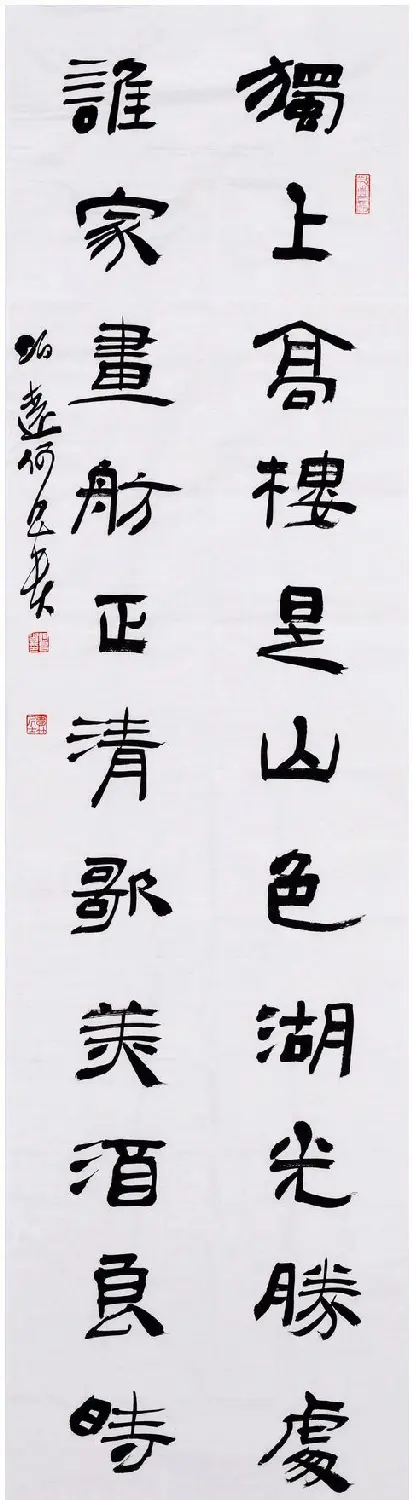 獨上高樓是山色湖光勝處
誰家畫舫正清歌美酒良時